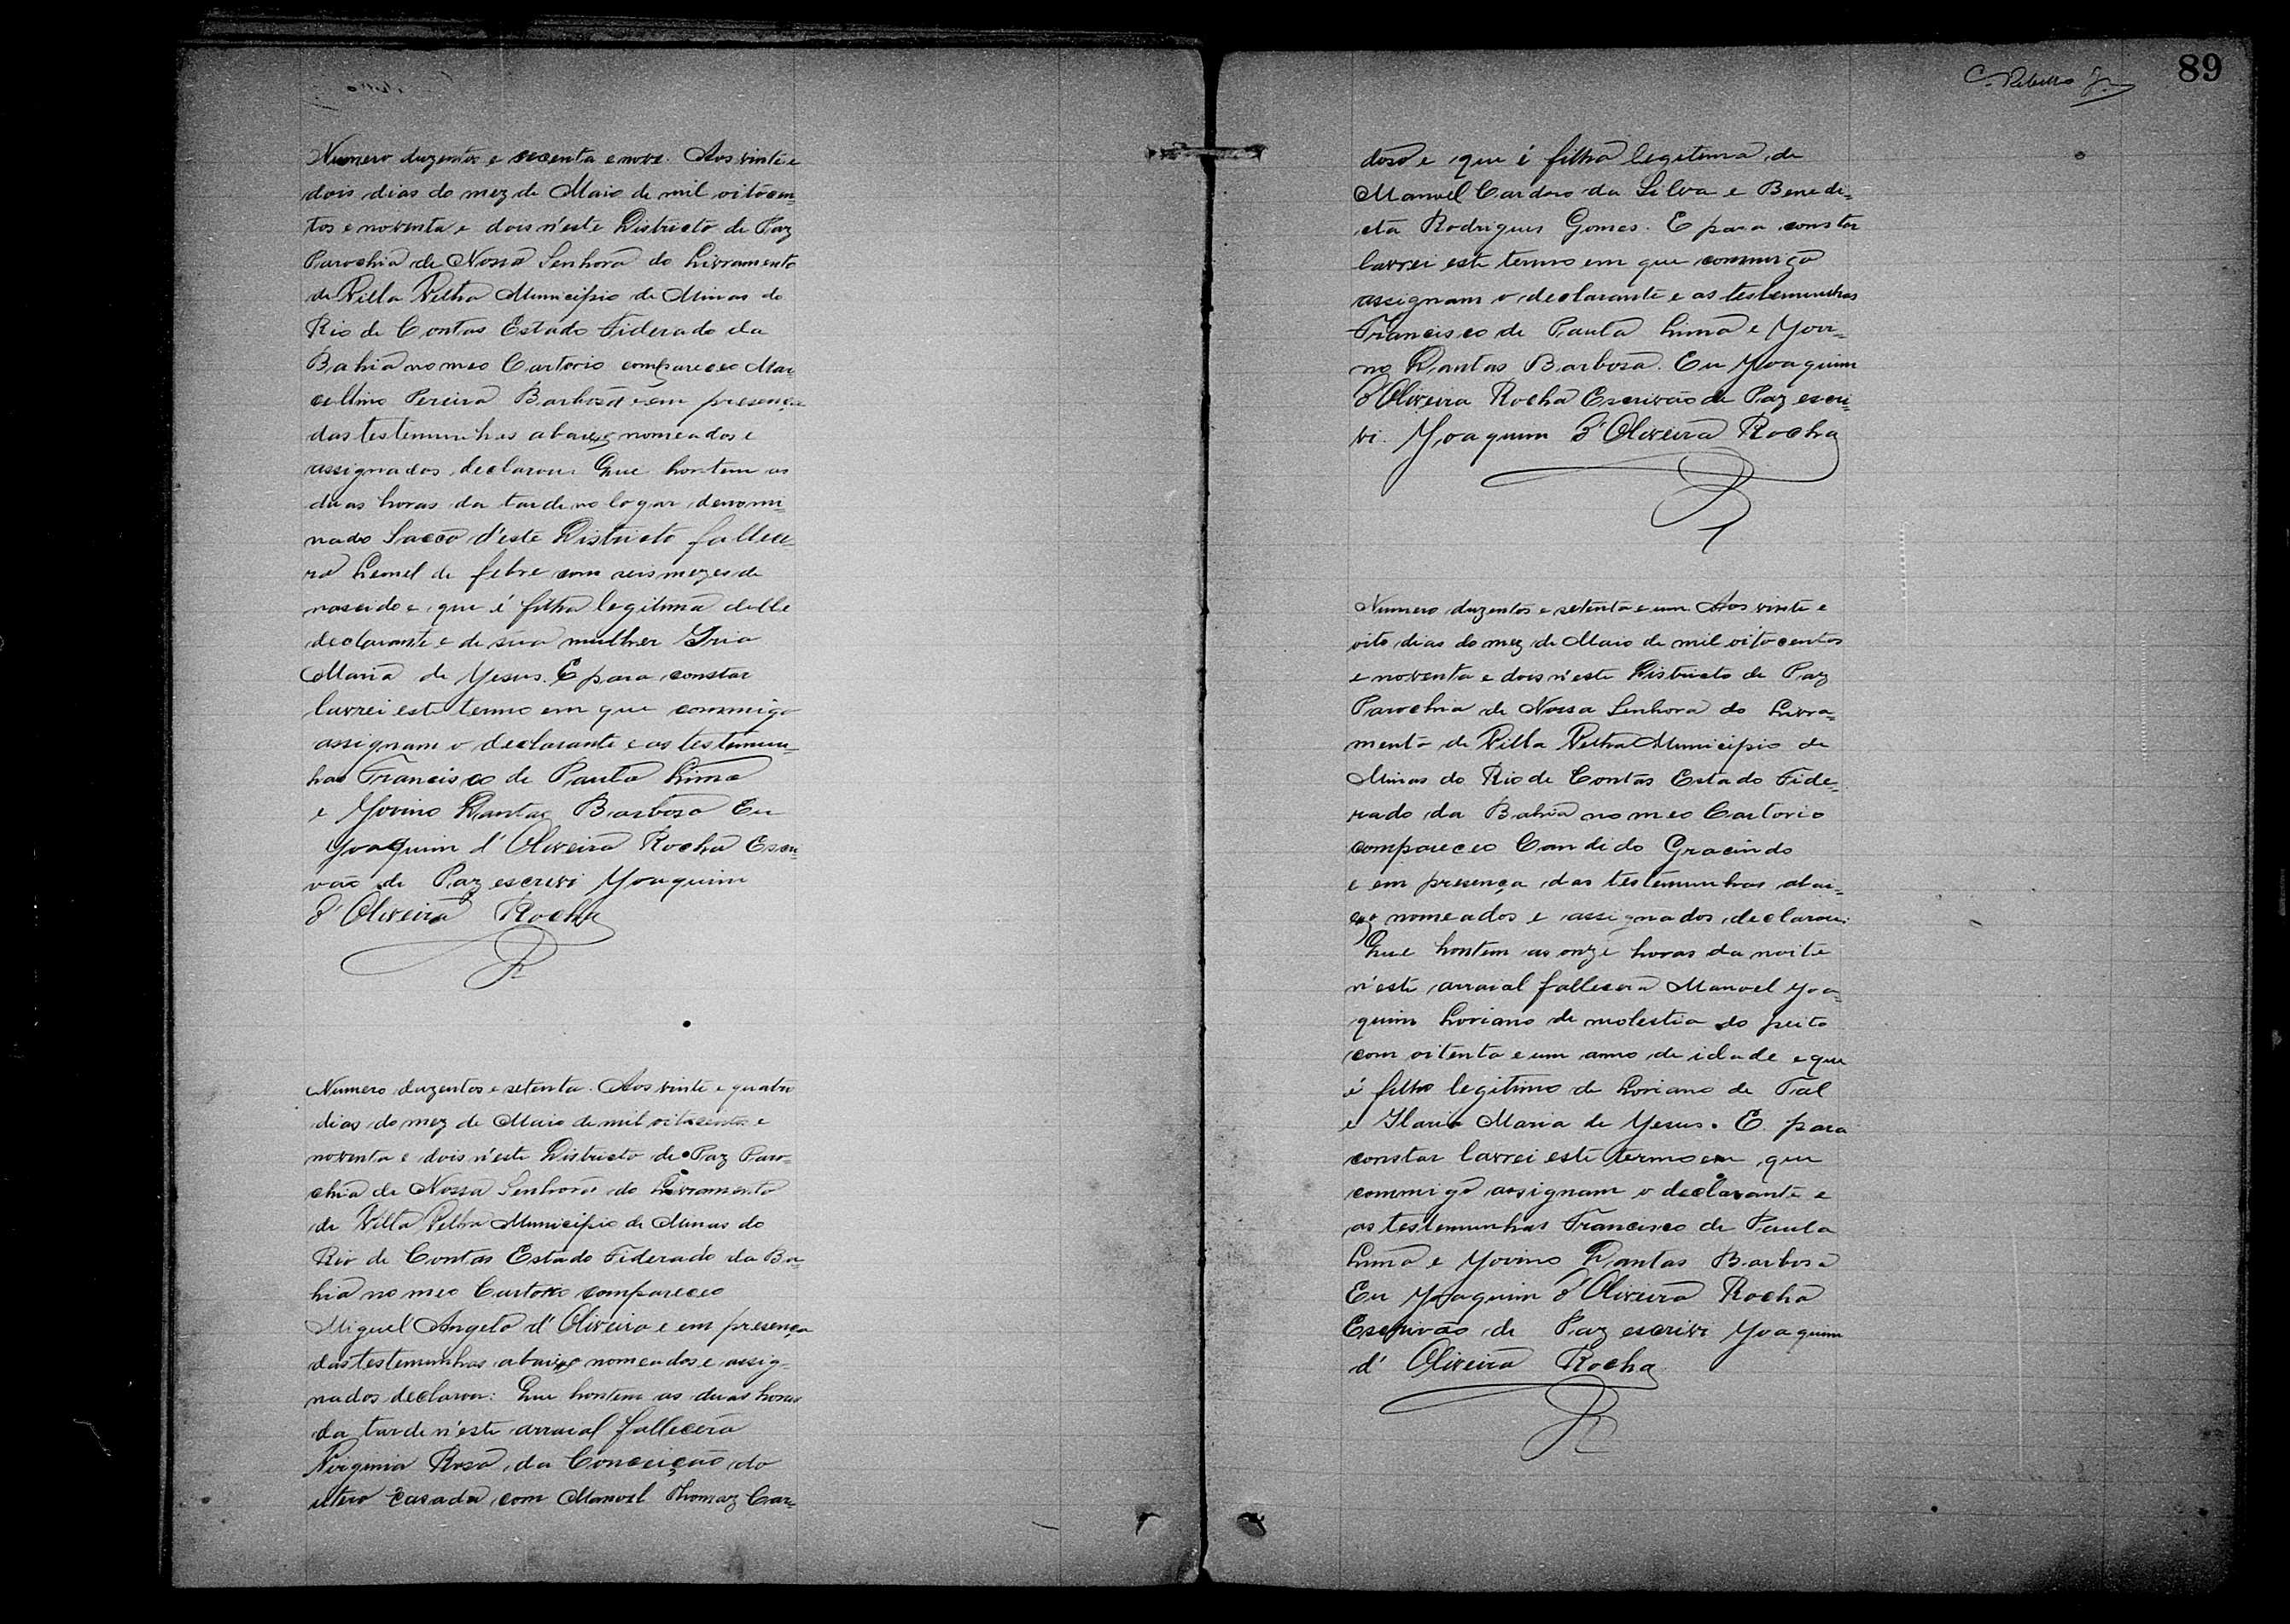 Numero duzentos e secenta e nove. Aos vinte e
dois dias do mez de Maio de mil oitocen=
tos e noventa e dois n'este Districto de Paz
Parochia de Nossa Senhora do Livramento
de Villa Velha Municipio de Minas do
Rio de Contas Estado Fiderado da
Bahia no meo Cartorio compareceo Mar=
cellino Pereira Barbosa e em presença
das testemunhas abaixo nomeados e
assignados, declarou: Que hontem as
duas horas da tarde no logar denomi=
nado Sacco d'este Districto fallece=
ra Leonel de febre com seis mezes de
nascido e que é filho legitimo delle
declarante e de sua mulher Iria
Maria de Jesus. E para constar
lavrei este termo em que commigo
assignam o declarante e as testemun=
has Francisco de Paula Lima
e Jovino Dantas Barbosa Eu
Joaquim d'Oliveira Rocha Escri=
vão de Paz escrivi Joaquim
d'Oliveira Rocha
Numero duzentos e setenta. Aos vinte e quatro
dias do mez de Maio de mil oitocentos e
noventa e dois n'este Districto de Paz Paro=
chia de Nossa Senhora do Livramento
de Villa Velha Municipio de Minas do
Rio de Contas Estado Fiderado da Ba=
hia no meo Cartorio compareceo
Miguel Angelo d'Oliveira e em presença
das testemunhas abaixo nomeados e assig=
nados declarou: Que hontem as duas horas
da tarde n'este arraial fallecera
Virginia Rosa da Conceição do
utero casada com Manoel Thomaz Car=
89
C. Ribeiro Jr.
doso e que é filha legitima de
Manoel Cardoso da Silva e Benedi=
cta Rodrigues Gomes. E para constar
lavrei este termo em que commigo
assignam o declarante e as testemunhas
Francisco de Paula Lima e Jovi=
no Dantas Barbosa. Eu Joaquim
d'Oliveira Rocha Escrivão de Paz escri=
vi. Joaquim d'Oliveira Rocha
Numero duzentos e setenta e um. Aos vinte e
oito dias do mez de Maio de mil oitocentos
e noventa e dois n'este Districto de Paz
Parochia de Nossa Senhora do Livra=
mento de Villa Velha Municipio de
Minas do Rio de Contas Estado Fide=
rado da Bahia no meo Cartorio
compareceo Candido Gracindo
e em presença das testemunhas abai=
xo nomeados e assignados, declarou:
Que hontem as onze horas da noite
n'este arraial fallecera Manoel Joa=
quim Loriano de molestia do peito
com oitenta e um anno de idade e que
é filho legitimo de Loriano de Tal
e Ilaria Maria de Jesus. E para
constar lavrei este termo em que
commigo assignam o declarante e
as testemunhas Francisco de Paula
Lima e Jovino Dantas Barbosa
Eu Joaquim d'Oliveira Rocha
Escrivão de Paz escrivi Joaquim
d'Oliveira Rocha